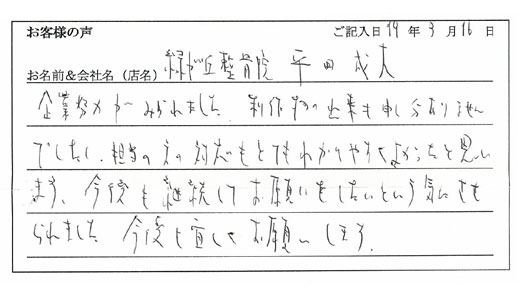 お客様の声 ご記入日 19 年 3 月 16 日
お名前&会社名(店名) 緑が丘整骨院 平田 成夫
企業努力がみられました。制作物の出来も申し分ありません
でしたし、担当の方の対応もとてもわかりやすくよかったと思い
ます。今後も継続してお願いをしたいという気にさせ
られました。今後も宜しくお願いします。